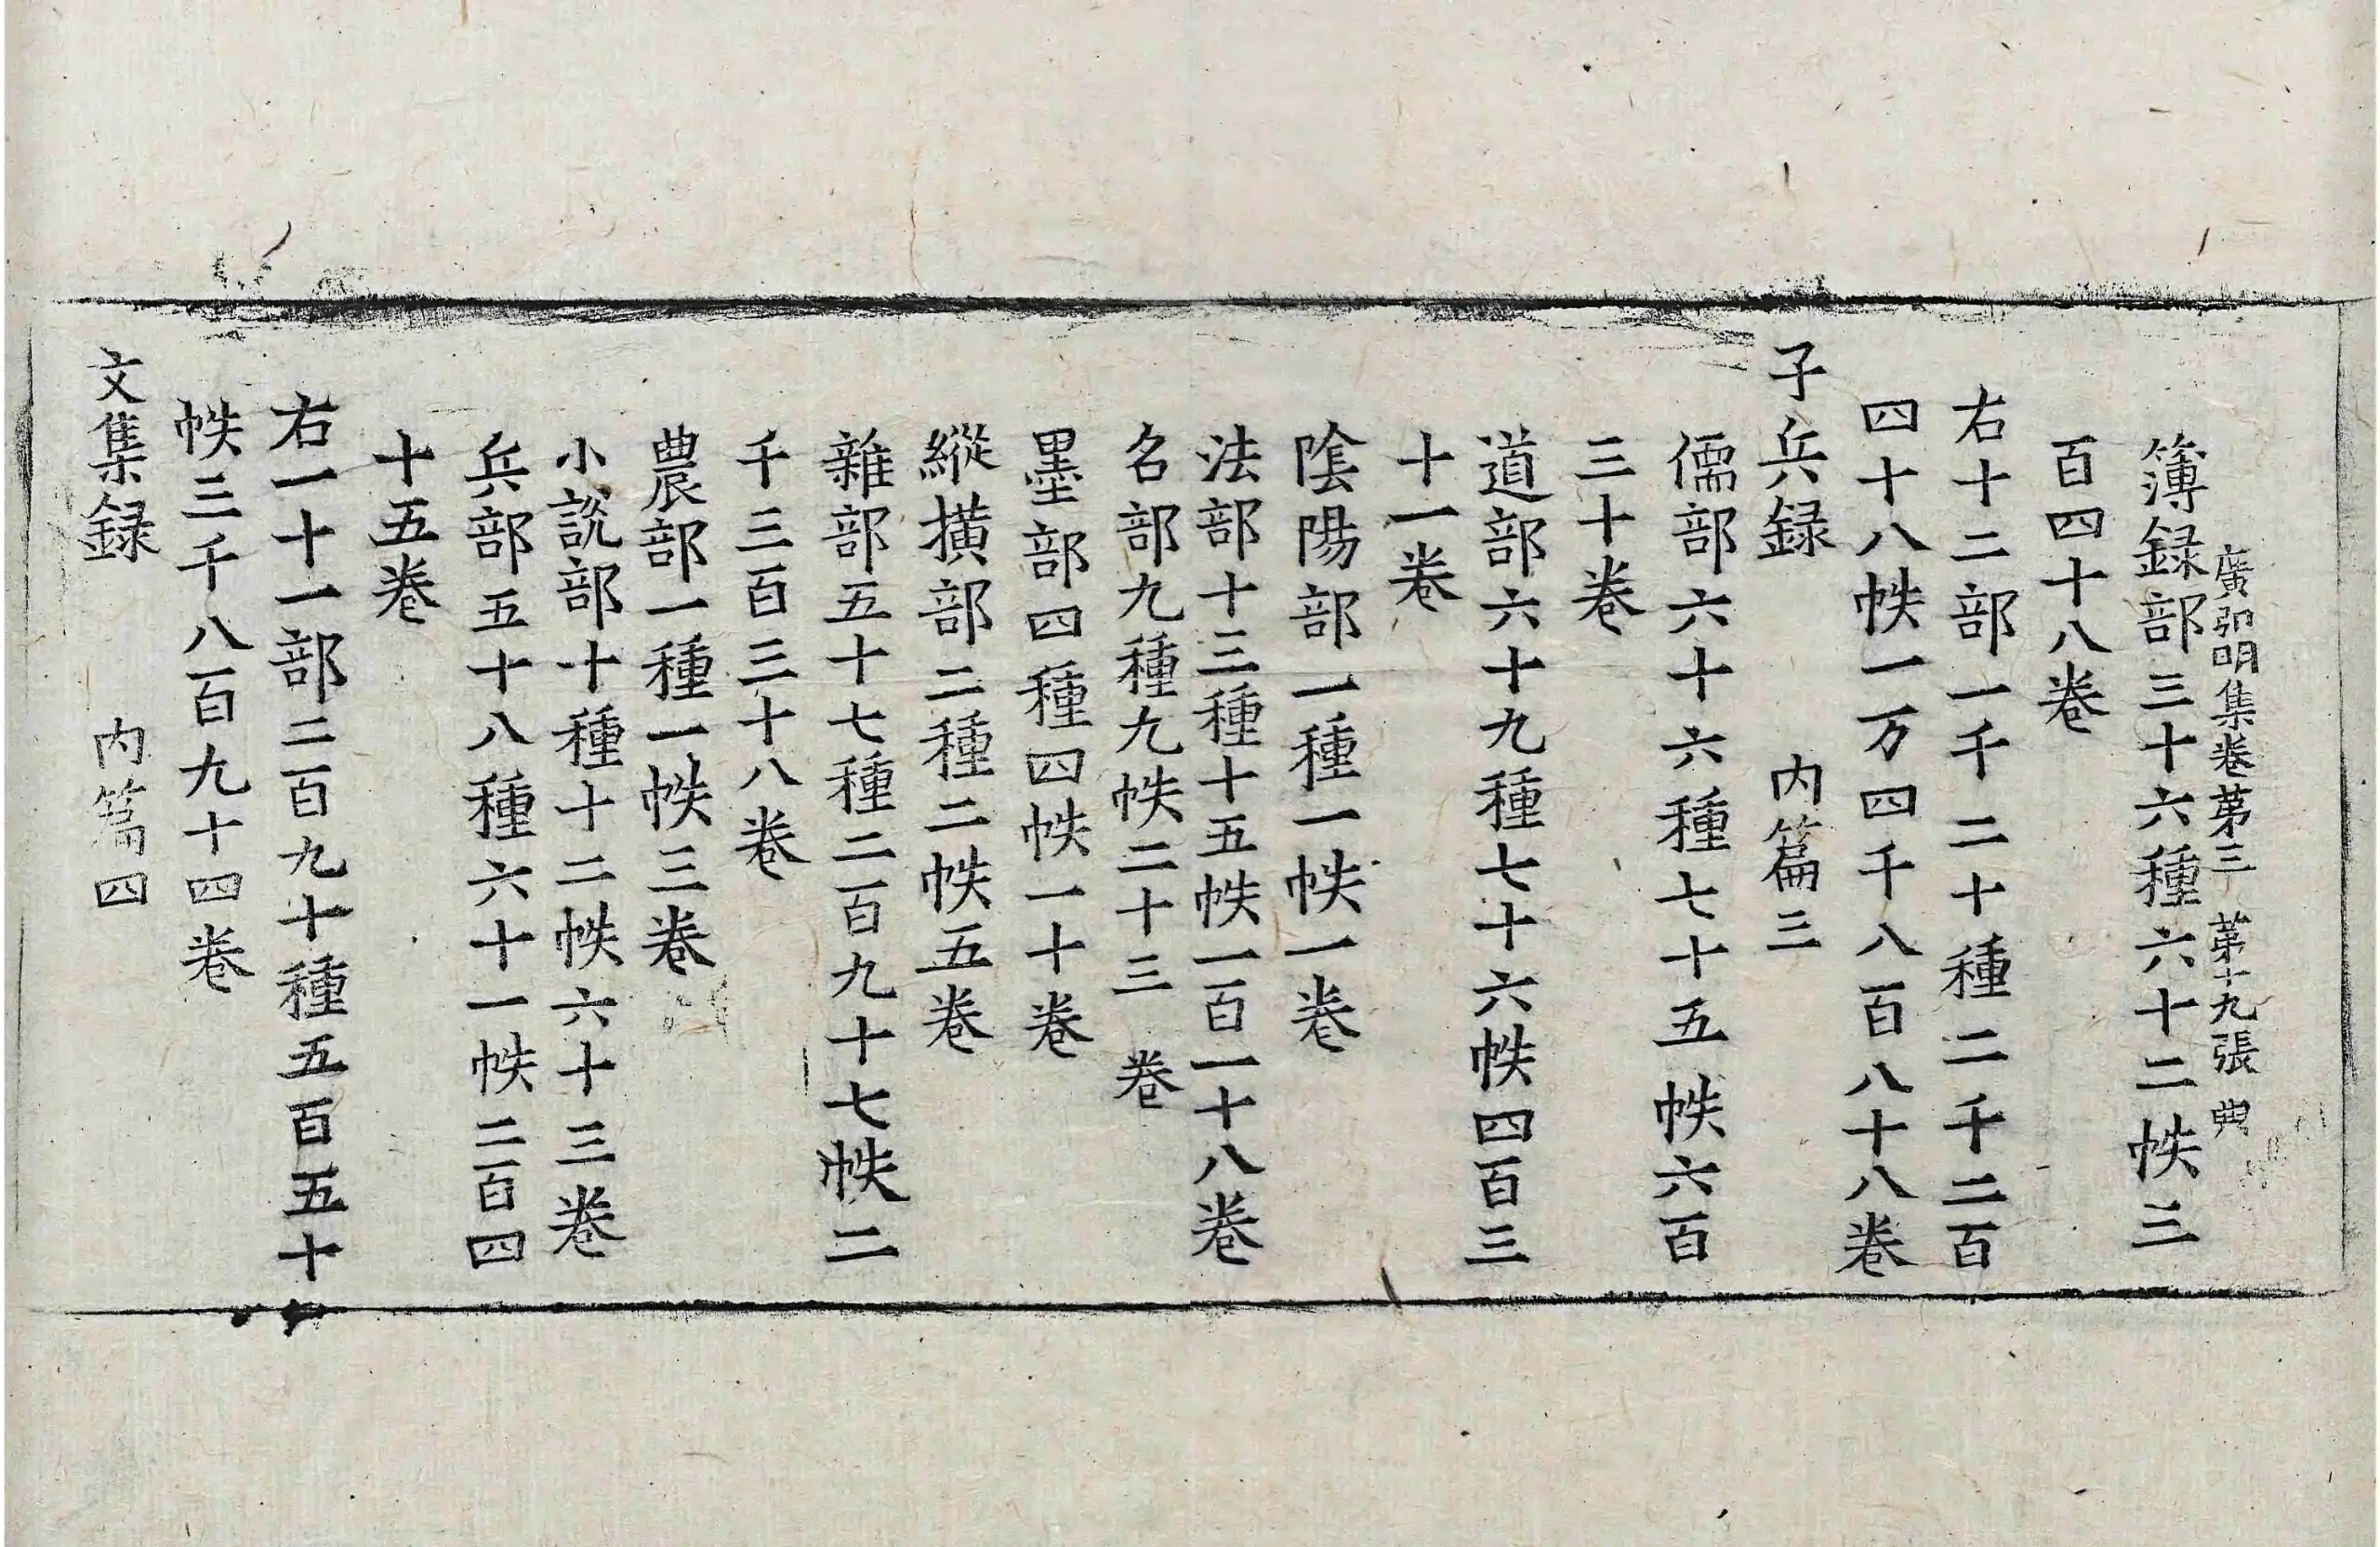 廣弘明集卷第三　第十九張　典
簿録部三十六種六十二帙三
百四十八卷
右十二部一千二十種二千二百
四十八帙一万四千八百八十八卷
子兵録　内篇三
儒部六十六種七十五帙六百
三十卷
道部六十九種七十六帙四百三
十一卷
陰陽部一種一帙一卷
法部十三種十五帙一百一十八卷
名部九種九帙二十三卷
墨部四種四帙一十卷
縱横部二種二帙五卷
雜部五十七種二百九十七帙二
千三百三十八卷
農部一種一帙三卷
小説部十種十二帙六十三卷
兵部五十八種六十一帙二百四
十五卷
右一十一部二百九十種五百五十
帙三千八百九十四卷
文集録　内篇四